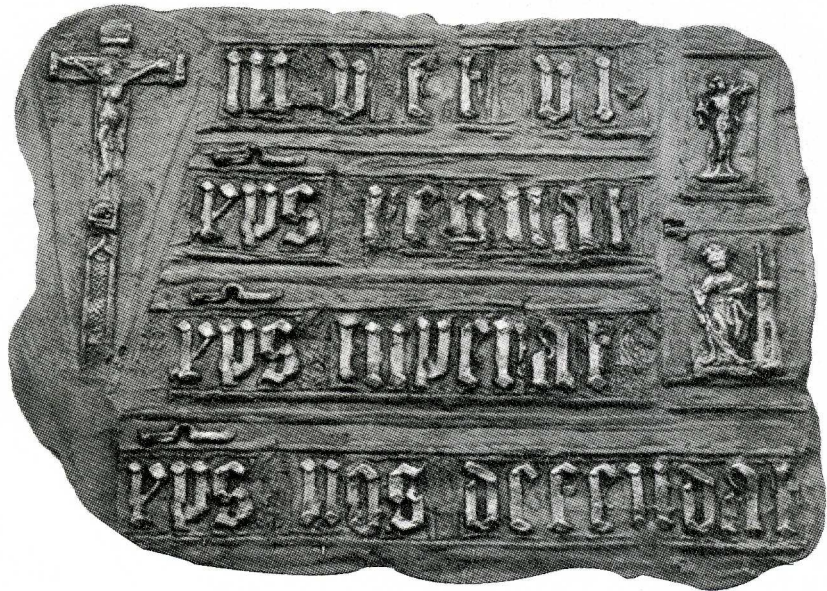 xps regnat
xps imperat
xps nos defendat